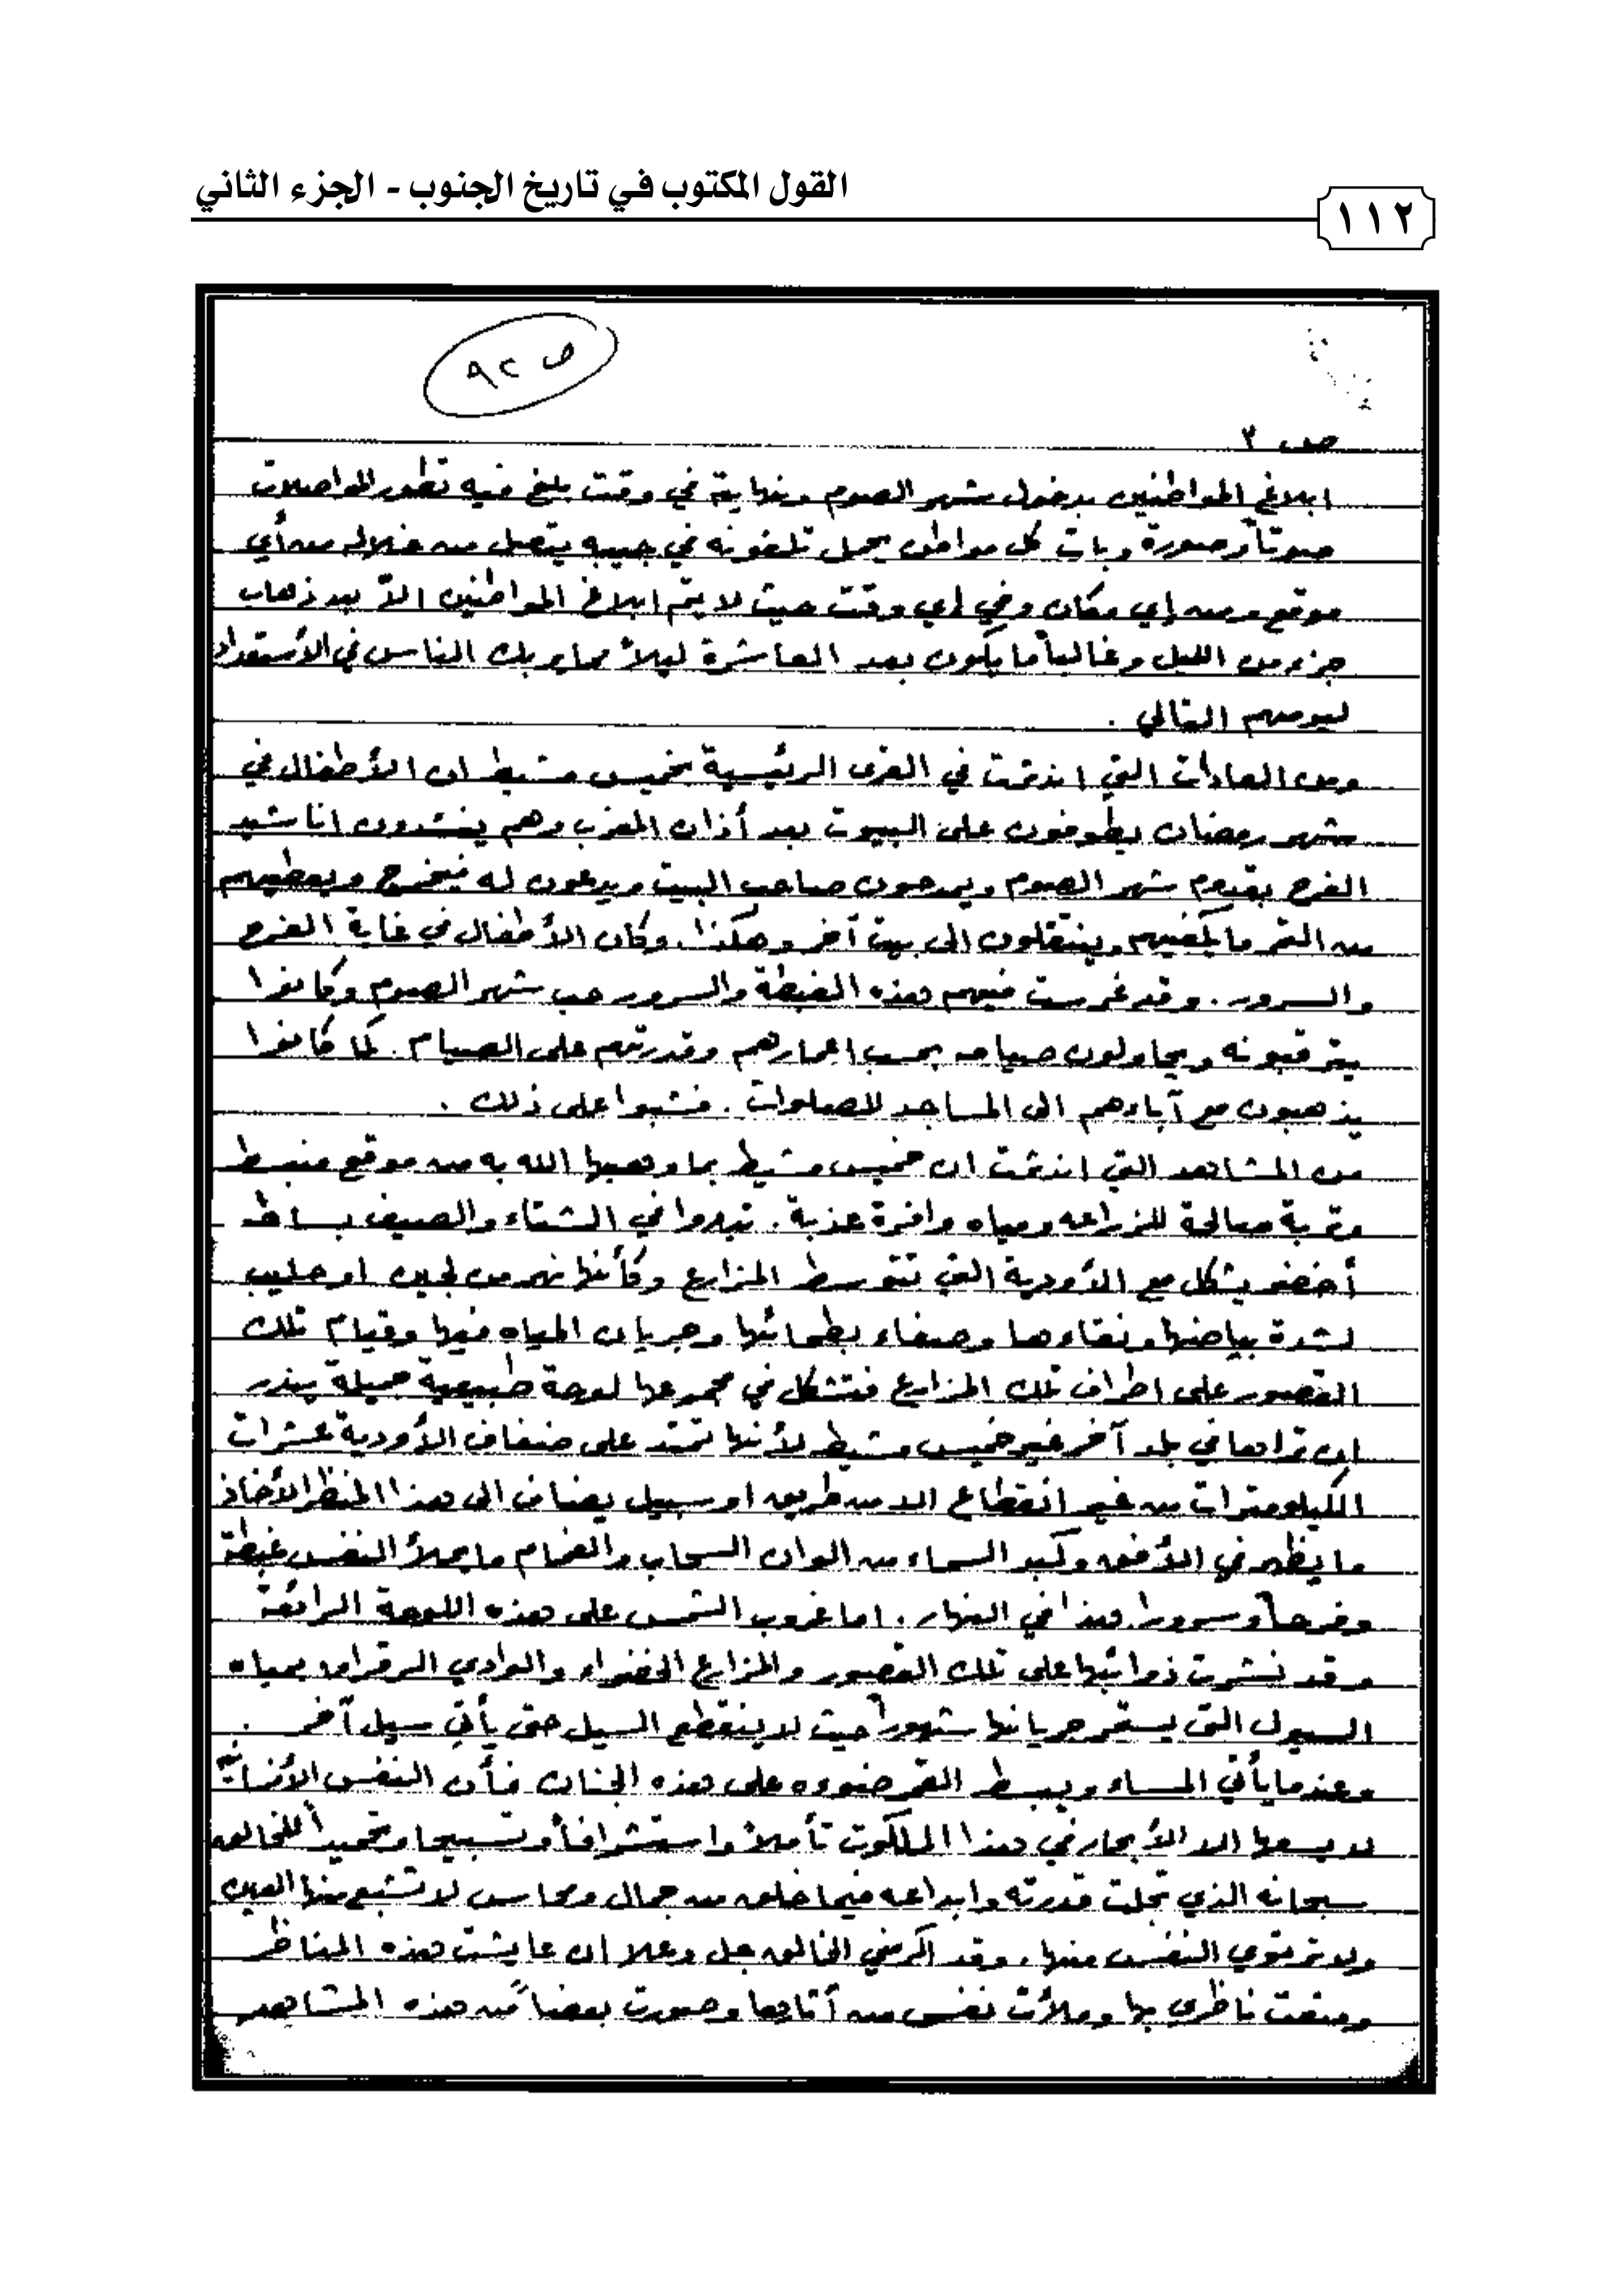 القول المكتوب في تاريخ الجنوب - الجزء الثاني
١١٢
ص ٩٢
ص ٣
ابلاغ المواطنين بدخول شهر الصوم ونهايته في وقت بلغ فيه تطور المواصلات
صوتاً وصورة وبات كل مواطن يحمل تلفونه في جيبه يتصل من خلاله من أي
موقع ومن إي مكان وفي إي وقت حيث لا يتم ابلاغ المواطنين الاّ بعد ذهاب
جزء من الليل وغالباً ما يكون بعد العاشرة ليلاً مما يربك الناس في الأستعداد
ليومهم التالي .
ومن العادات التي اندثرت في القرى الرئيسية بخميس مشيط ان الأطفال في
شهر رمضان يطوفون على البيوت بعد أذان المغرب وهم ينشدون اناشيد
الفرح بقدوم شهر الصوم ويمدحون صاحب البيت ويدعون له فيخرج ويعطيهم
من التمر ما يكفيهم وينتقلون الى بيت آخر وهكذا . وكان الأطفال في غاية الفرح
والسرور . وقد غرست فيهم هذه الغبطة والسرور حب شهر الصوم وكانوا
يترقبونه ويحاولون صيامه بحسب اعمارهم وقدرتهم على الصيام . كما كانوا
يذهبون مع آباءهم الى المساجد للصلوات . فشبوا على ذلك .
من المشاهد التي اندثرت ان خميس مشيط بما وهبها الله به من موقع منبسط
وتربة صالحة للزراعه ومياه وافرة عذبة . تبدوا في الشتاء والصيف بساط
أخضر يشكل مع الأودية التي تتوسط المزارع وكأنها نهر من لجين او حليب
لشدة بياضها ونقاءها وصفاء بطحائها وجريان المياه فيها وقيام تلك
القصور على اطراف تلك المزارع فتشكل في مجموعها لوحة طبيعية جميلة يندر
ان تراها في بلد آخر غير خميس مشيط لأنها تمتد على ضفاف الأودية عشرات
الكيلومترات من غير انقطاع الا من طريق او سبيل يضاف الى هذا المنظر الأخاذ
ما يظهر في الأفق وكبد السماء من الوان السحاب والغمام ما يملأ النفس غبطة
وفرحاً وسرورا هذا في النهار . اما غروب الشمس على هذه اللوحة الرائعة
وقد نشرت ذوائبها على تلك القصور والمزارع الخضراء والوادي الرقراق بمياه
السيول التي يستمر جريانها شهوراً حيث لا ينقطع السيل حتى يأتي سيل آخر .
وعندما يأتي المساء ويبسط القمر ضوءه على هذه الجنان فأن النفس الأنسانية
لا يسعها الا الأبحار في هذا الملكوت تأملاً واستشرافاً وتسبيحا وتحميداً للخالق
سبحانه الذي تجلت قدرته وابداعه فيما خلق من جمال ومحاسن لا تشبع منها العين
ولا ترتوي النفس منها . وقد اكرمني الخالق جل وعلا ان عايشت هذه المناظر
ومتعت ناظري بها وملأت نفسي من وصورت بعضاً من هذه المشاهد